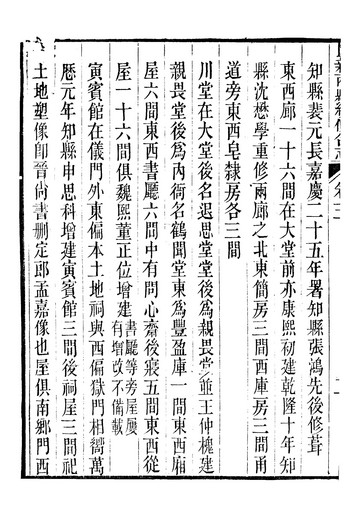 知縣裴元長嘉慶二十五年署知縣張鴻先後修葺
東西廊一十六間在大堂前亦康熙初建乾隆十年知
縣沈懋學重修兩廊之北東簡房三間西庫房三間甬
道旁東西皂隸房各三間
川堂在大堂後名退思堂堂後爲親畏堂並王仲槐建
親畏堂後爲內衙名鶴聞堂東爲豐盈庫一間東西廂
屋六間東西書廳六間中有問心齋後寢五間東西從
屋一十六間俱魏熙董正位增建書廳等旁屋屢有增改不備載
寅賓館在儀門外東偏本土地祠與西偏獄門相嚮萬
厯元年知縣申思科增建寅賓館三間後祠屋三間祀
土地塑像卽晉尚書刪定郎孟嘉像也屋俱南鄉門西